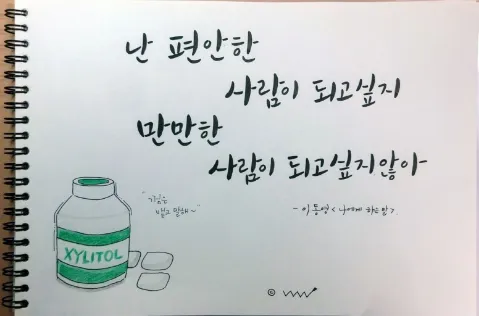 난 편안한
사람이 되고싶지
만만한
사람이 되고싶지않아
"껌은
뱉고 말해~"
- 이동영 <나에게 하는 말>
XYLITOL
©